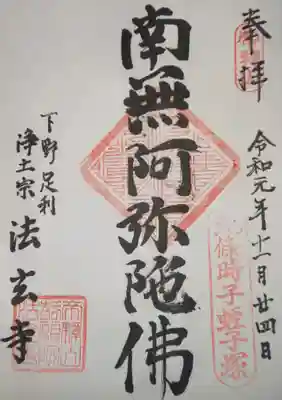 奉拝
令和元年十一月廿四日
時子蛭子塚
南無阿弥陀佛
下野足利
浄土宗
法玄寺